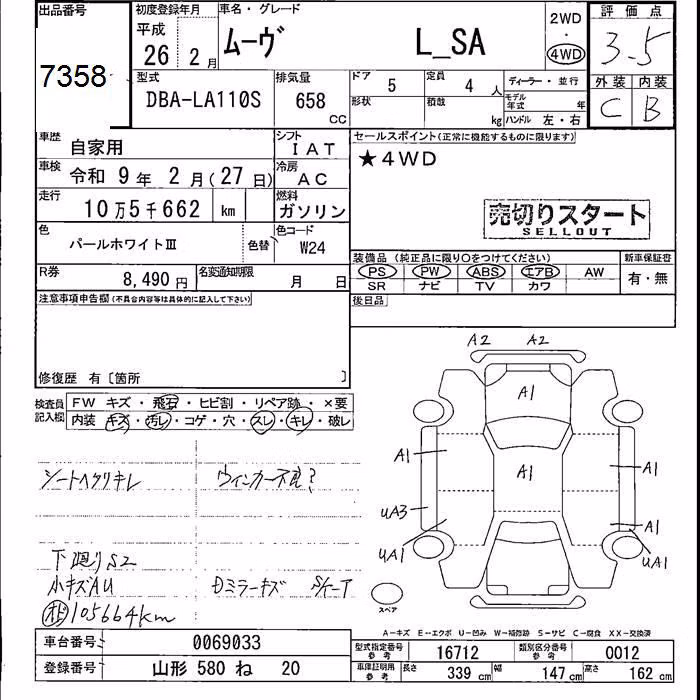 出品番号
7358
初度登録年月
平成
26 2月
車名・グレード
ムーヴ L_SA
2WD
・
4WD
評価点
3.5
外装 内装
C B
型式
DBA-LA110S
排気量
658
CC
ドア
5
定員
4 人
形状
積載
kg
ディーラー・並行
モデル年式 年
ハンドル 左・右
車歴
自家用
シフト
IAT
車検
令和 9年 2月(27日)
冷房
AC
走行
10万5千662 km
燃料
ガソリン
色
パールホワイトⅢ
色替
色コード
W24
R券
8,490円
名変通知期限
月 日
セールスポイント(正常に機能するものに限ります)
★4WD
売切りスタート
SELLOUT
装備品 (純正品に限り〇をつけてください)
PS PW ABS エアB AW
SR ナビ TV カワ
新車保証書
有・無
注意事項申告欄(不具合内容等は具体的に記入して下さい)
後日品
修復歴 有〔箇所 〕
検査員記入欄
FW キズ・飛石・ヒビ割・リペア跡・×要
内装 キズ・汚レ・コゲ・穴・スレ・キレ・破レ
シートヘタリキレ
ウィンカー不良?
下廻りS2
小キズAU
Dミラーキズ
105664km
A2 A2
A1
A1
A1
A1
UA3
A1
UA1
UA1
スペア
A-キズ E-エクボ U-凹み W-補修跡 S-サビ C-腐食 XX-交換済
車台番号
0069033
登録番号
山形 580 ね 20
型式指定番号
参考
16712
類別区分番号
参考
0012
車庫証明用
参考
長さ 339 cm
幅 147 cm
高さ 162 cm